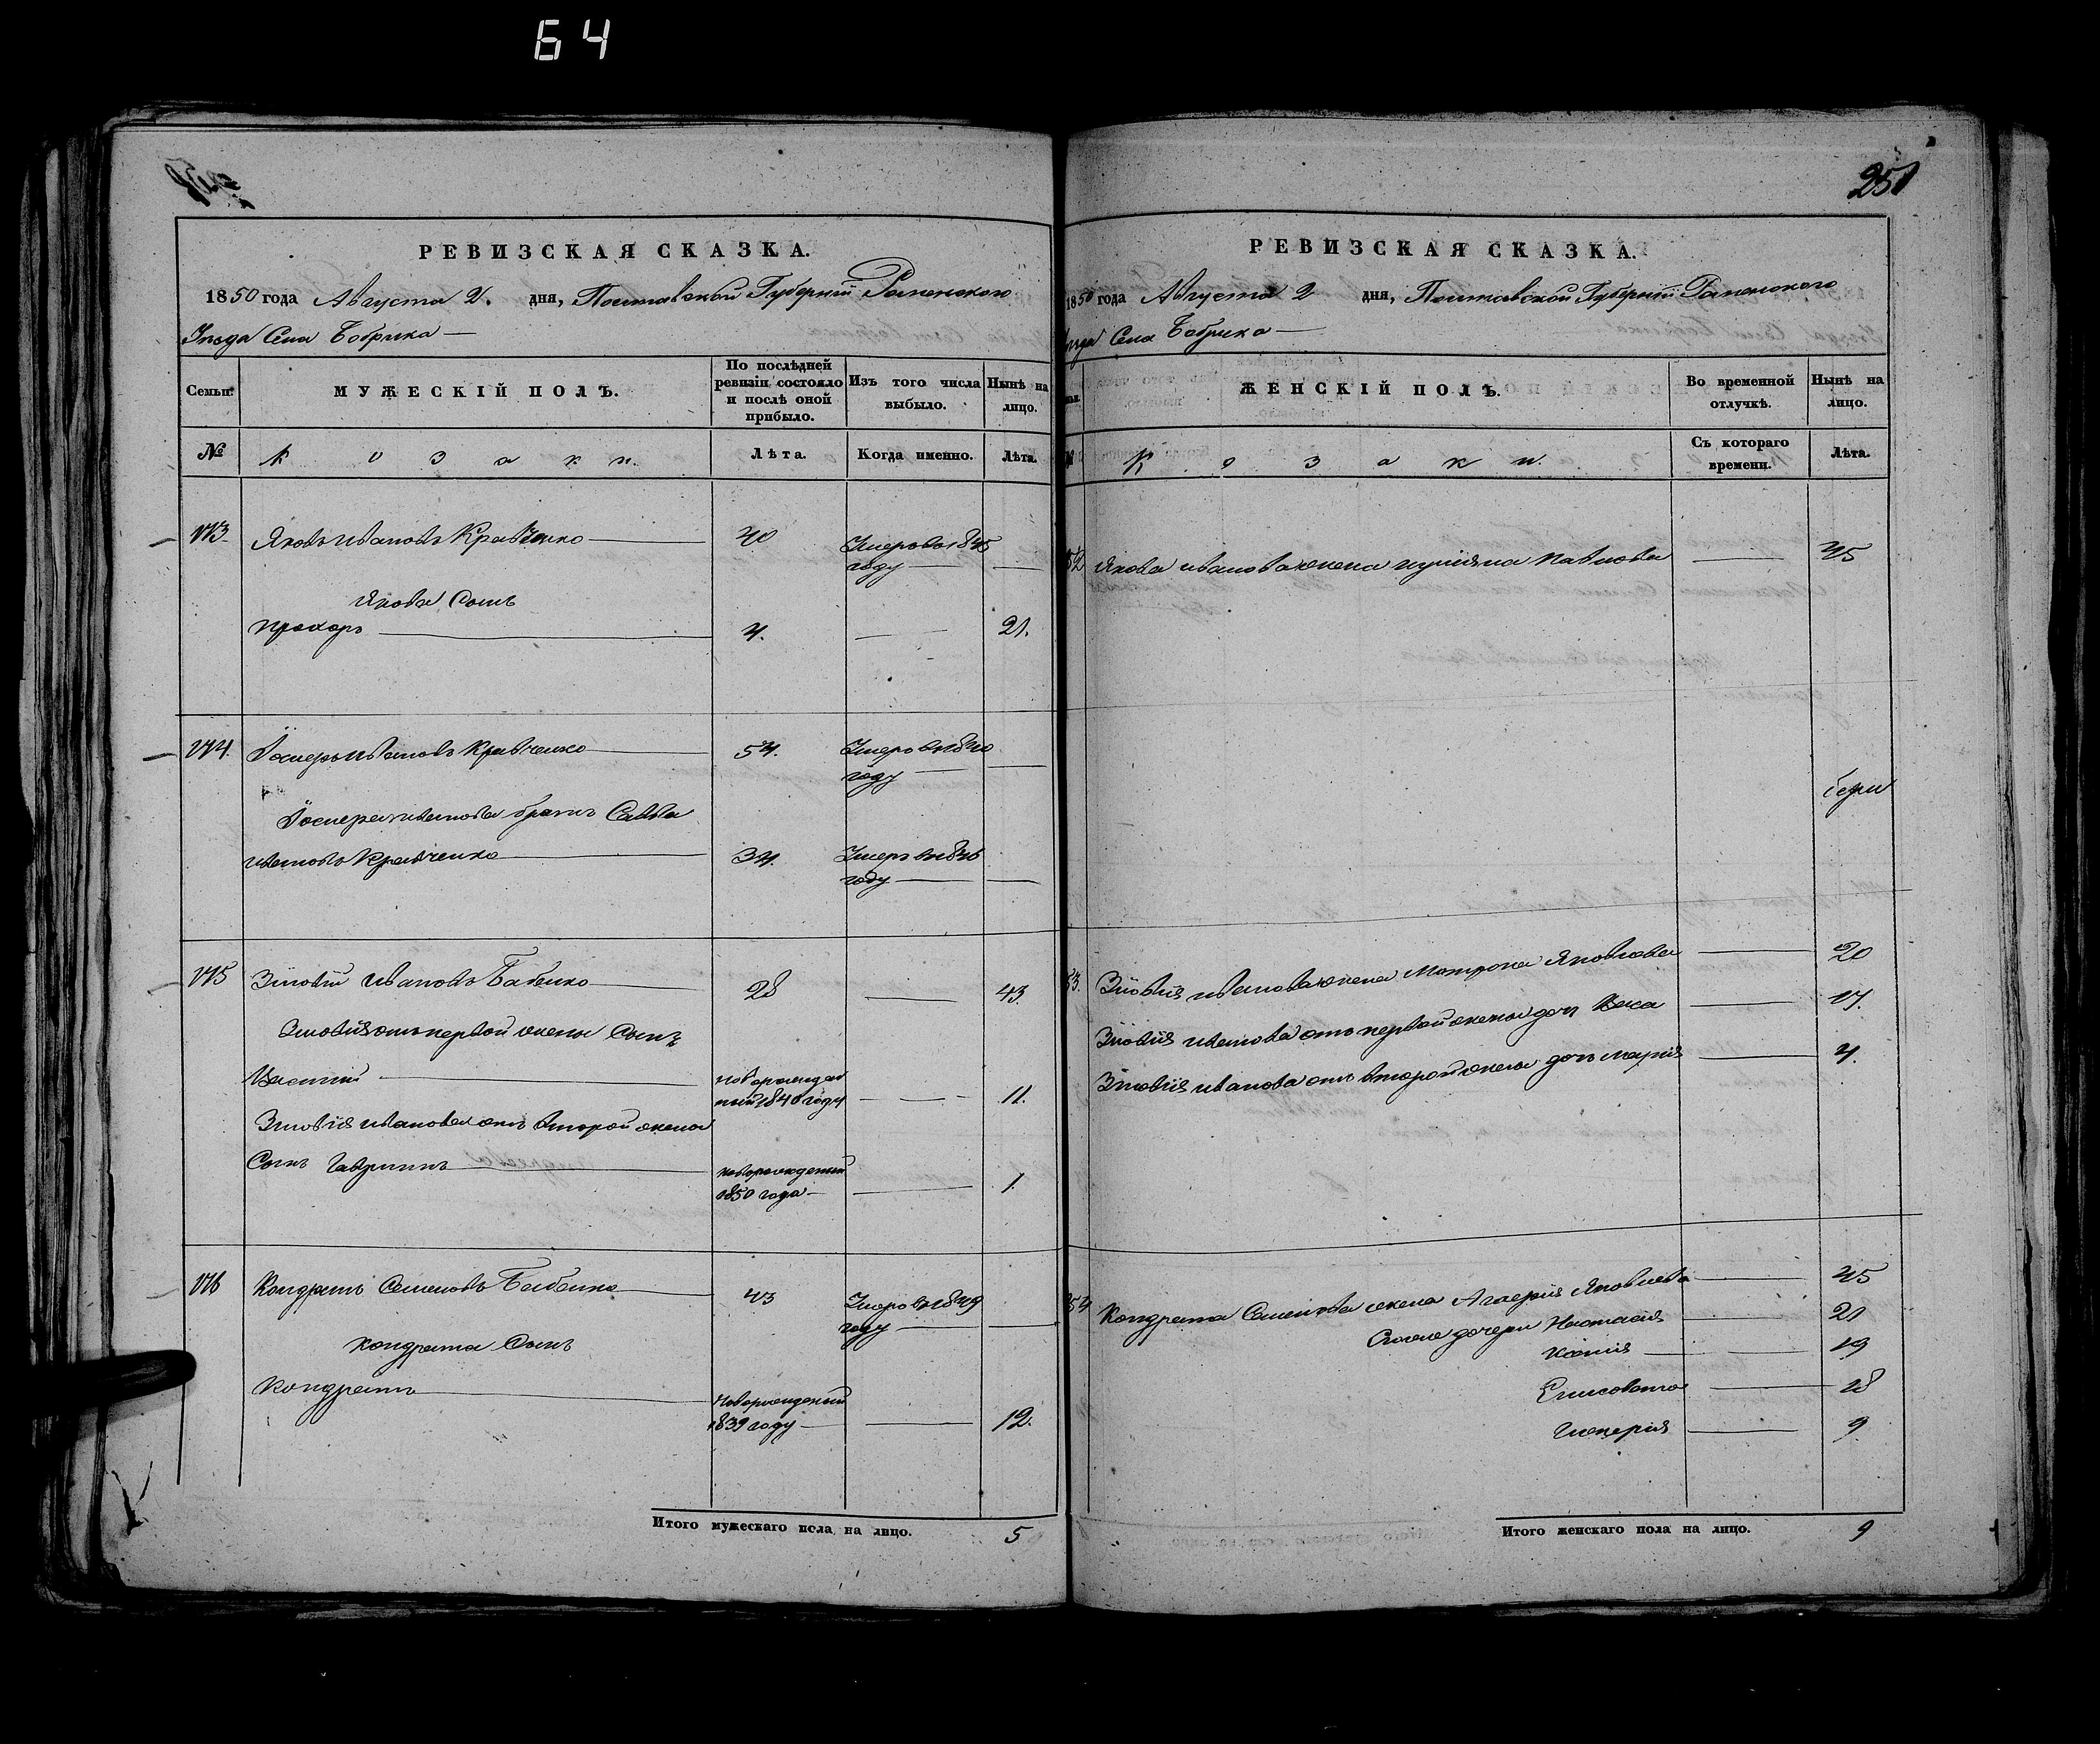 64
251
РЕВИЗСКАЯ СКАЗКА.
1850 года Августа 2. дня, Полтавской Губерніи Роменского
Уѣзда Села Бобрика
Семьи. МУЖЕСКІЙ ПОЛЪ. По послѣдней ревизіи состояло и послѣ оной прибыло. Изъ того числа выбыло. Нынѣ на лицо.
№ Козаки. Лѣта. Когда именно. Лѣта.
Яковъ Ивановъ Кравченко 40 Умеръ в 1845
году
Якова Сынъ
Прохоръ 4. 21.
Ивановъ Кравченко 54. Умеръ в 1840
году
Иванова братъ Савва
Ивановъ Кравченко 34. Умеръ в 1846
году
Зіновій Ивановъ Бабенко 28 43.
Зіновія отъ первой жены Сынъ
новорожден
ный 1840 году 11.
Зіновія Иванова отъ второй жены
Сынъ Гавриилъ новорожденный
1850 года 1.
Кондратъ Семеновъ Бабенко 43 Умеръ в 1849
году
Кондрата Сынъ
Кондратъ новорожденный
1839 году 12.
Итого мужескаго пола на лицо. 5
РЕВИЗСКАЯ СКАЗКА.
1850 года Августа 2 дня, Полтавской Губерніи Роменского
Уѣзда Села Бобрика
ЖЕНСКІЙ ПОЛЪ. Во временной отлучкѣ. Нынѣ на лицо.
№ Козаки. Съ котораго времени. Лѣта.
52 Якова Иванова жена Павлова 45
53. Зіновія Иванова жена Мотрона Яковлева 20
Зіновія Иванова отъ первой жены доч 17.
Зіновія Иванова отъ второй жены дочь Марія 4
54 Кондрата Семенова жена Яковлева 45
дочери Настасія 21
Ксенія 19
Елисовета 18
Гликерія 9
Итого женскаго пола на лицо. 9